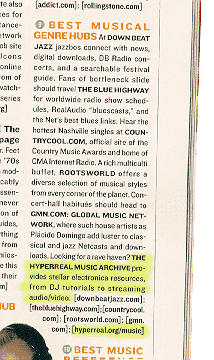 [addict.com]; [rollingstone.com]
9 BEST MUSICAL
GENRE HUBS At DOWN BEAT
JAZZ jazzbos connect with news,
digital downloads, DB Radio con-
certs, and a searchable festival
guide. Fans of bottleneck slide
should travel THE BLUE HIGHWAY
for worldwide radio show sched-
ules, RealAudio "bluescasts," and
the Net's best blues links. Hear the
hottest Nashville singles at COUN-
TRYCOOL.COM, official site of the
Country Music Awards and home of
CMA Internet Radio. A rich multiculti
buffet, ROOTSWORLD offers a
diverse selection of musical styles
from every corner of the planet. Con-
cert-hall habitués should head to
GMN.COM: GLOBAL MUSIC NET-
WORK, where such house artists as
Plácido Domingo add luster to clas-
sical and jazz Netcasts and down-
loads. Looking for a rave haven? THE
HYPERREAL MUSIC ARCHIVE pro-
vides stellar electronica resources,
from DJ tutorials to streaming
audio/video. [downbeatjazz.com];
[thebluehighway.com]; [countrycool.
com]; [rootsworld.com]; [gmn.
com]; [hyperreal.org/music]
10 BEST MUSIC
REFERENCE
te also
ces for
dance-
etwork
eb site
Icons
online
from
watch-
series
rg]
The
page
r. Feet
e '70s
mod-
cably
essen-
never
on of
uides,
thing
from
philos-
e this
their
HUB